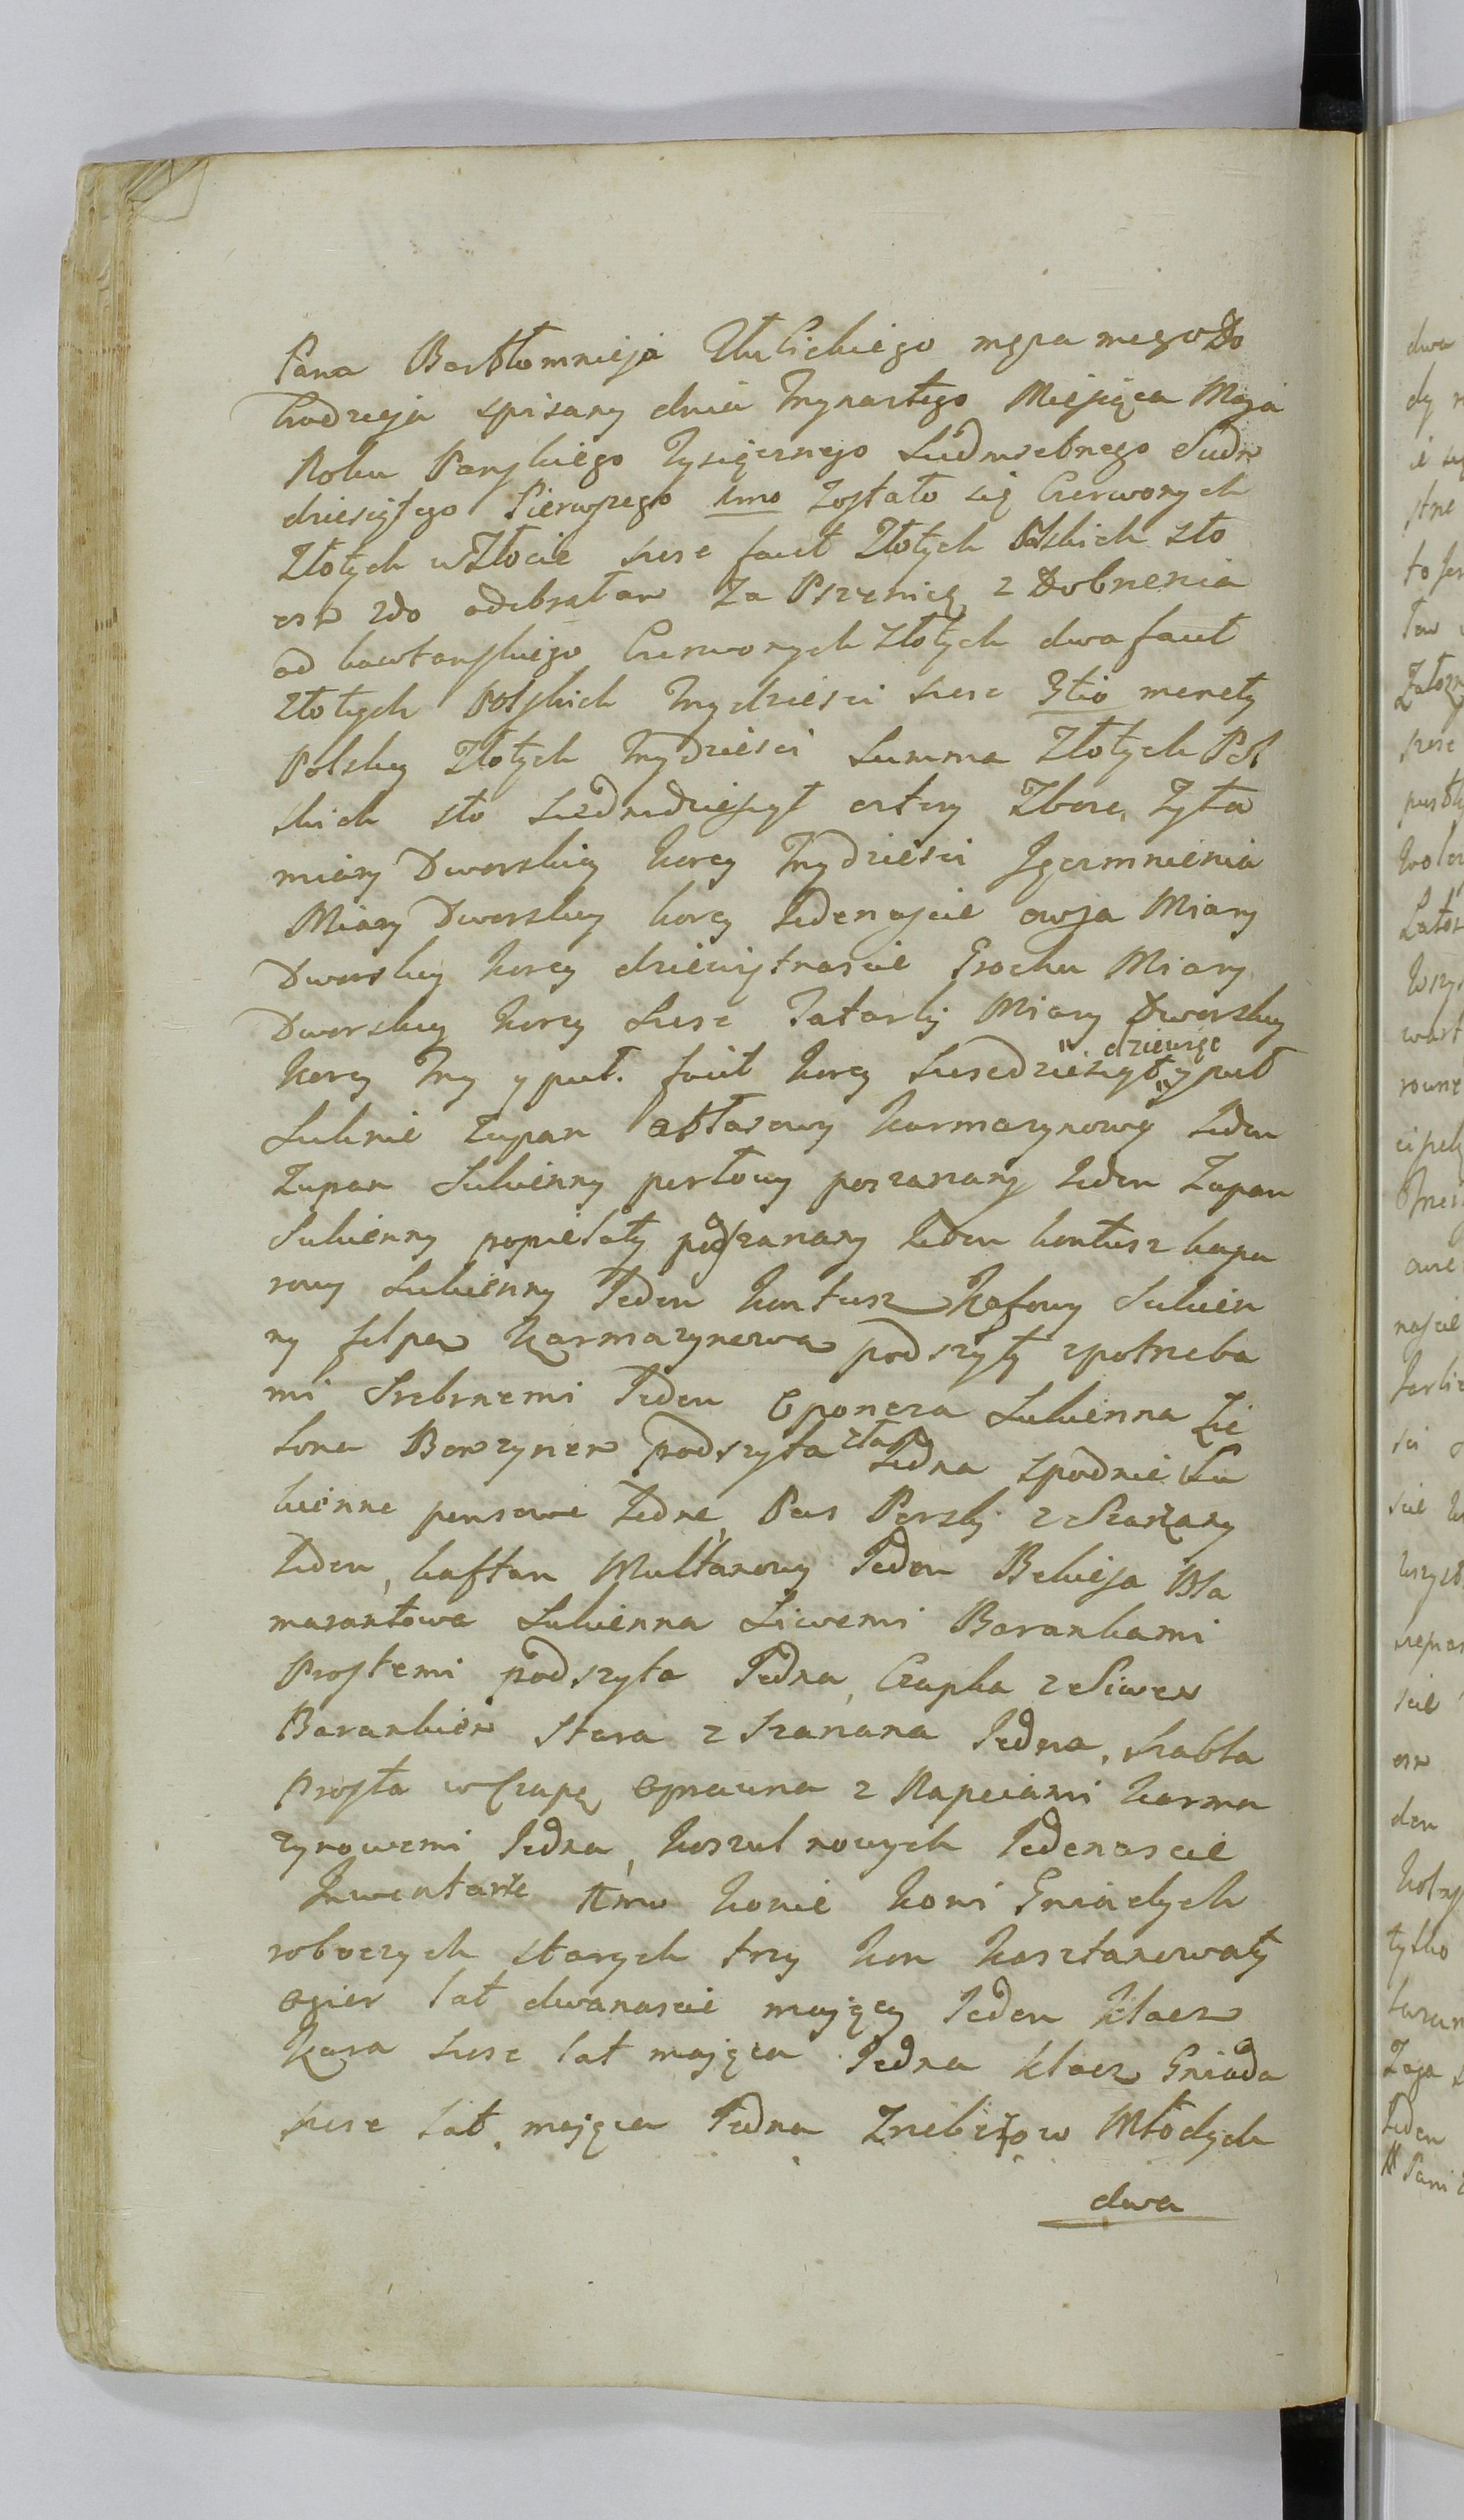 Pana Bartłomnieja męża mego Do
brodzieja spisany dnia trzynastego Miesiąca Maja
Roku Panskiego tysiącznego Siedmsebnego Siedm
dziesiątego Pierwszego 1mo zostało się Czerwonych
Złotych w Złocie szesc facit Złotych Polskich sto
osm 2do odebrałam za Pszenicę z Dobnenia
od Czerwonych Złotych dwa facit
Złotych Polskich trzydziesci szesc 3tio monety
Polskiy Złotych trzydziesci Summa Złotych Pol
skich sto siedmdziesiąt cztery Zboże, Zyta
miary Dworskiy korcy trzydziesci Jęczmnienia
Miary Dworskiy korcy Jedenascie owsa Miary
Dworskiy korcy dziewiętnascie Grochu Miary
Dworskiy korcy szesc Tatarki Miary Dworskiy
korcy trzy y puł. facit korcy szescdziesiąt dziewięc y puł
Suknie Zupan atłasowy karmazynowy Jeden
Zupan Sukienny perłowy poszarzany Jeden Zupan
Sukienny popielaty poszarzany Jeden kontusz kapa
rowy Sukienny Jeden kontusz kafowy Sukien
ny felpą karmazynową podszyty z potrzeba
mi Srebrnemi Jeden Oponcza Sukienna Zie
lona podszyta zła Jedna spodnie Su
kienne pensowe Jedne, Pas Perski zSzarzany
Jeden, kaftan Multanowy Jeden Bekiesza
marantowa Sukienna Siwemi Barankami
Prostemi podszyta Jedna, Czapka z Siwem
Barankiem stara zszarzana Jedna, szabla
Prosta w Czapę oprawna z Rapciami karma
zynowemi Jedna, koszul nowych Jedenascie
Inwentarze 1mo konie koni Gniadych
roboczych starych trzy kon kasztanowaty
ogier lat dwanascie maiący Jeden klacz
kara szesc lat mająca Jedna klacz Gniada
szesc lat mająca Jedna Zrebiąow Młodych
dwa